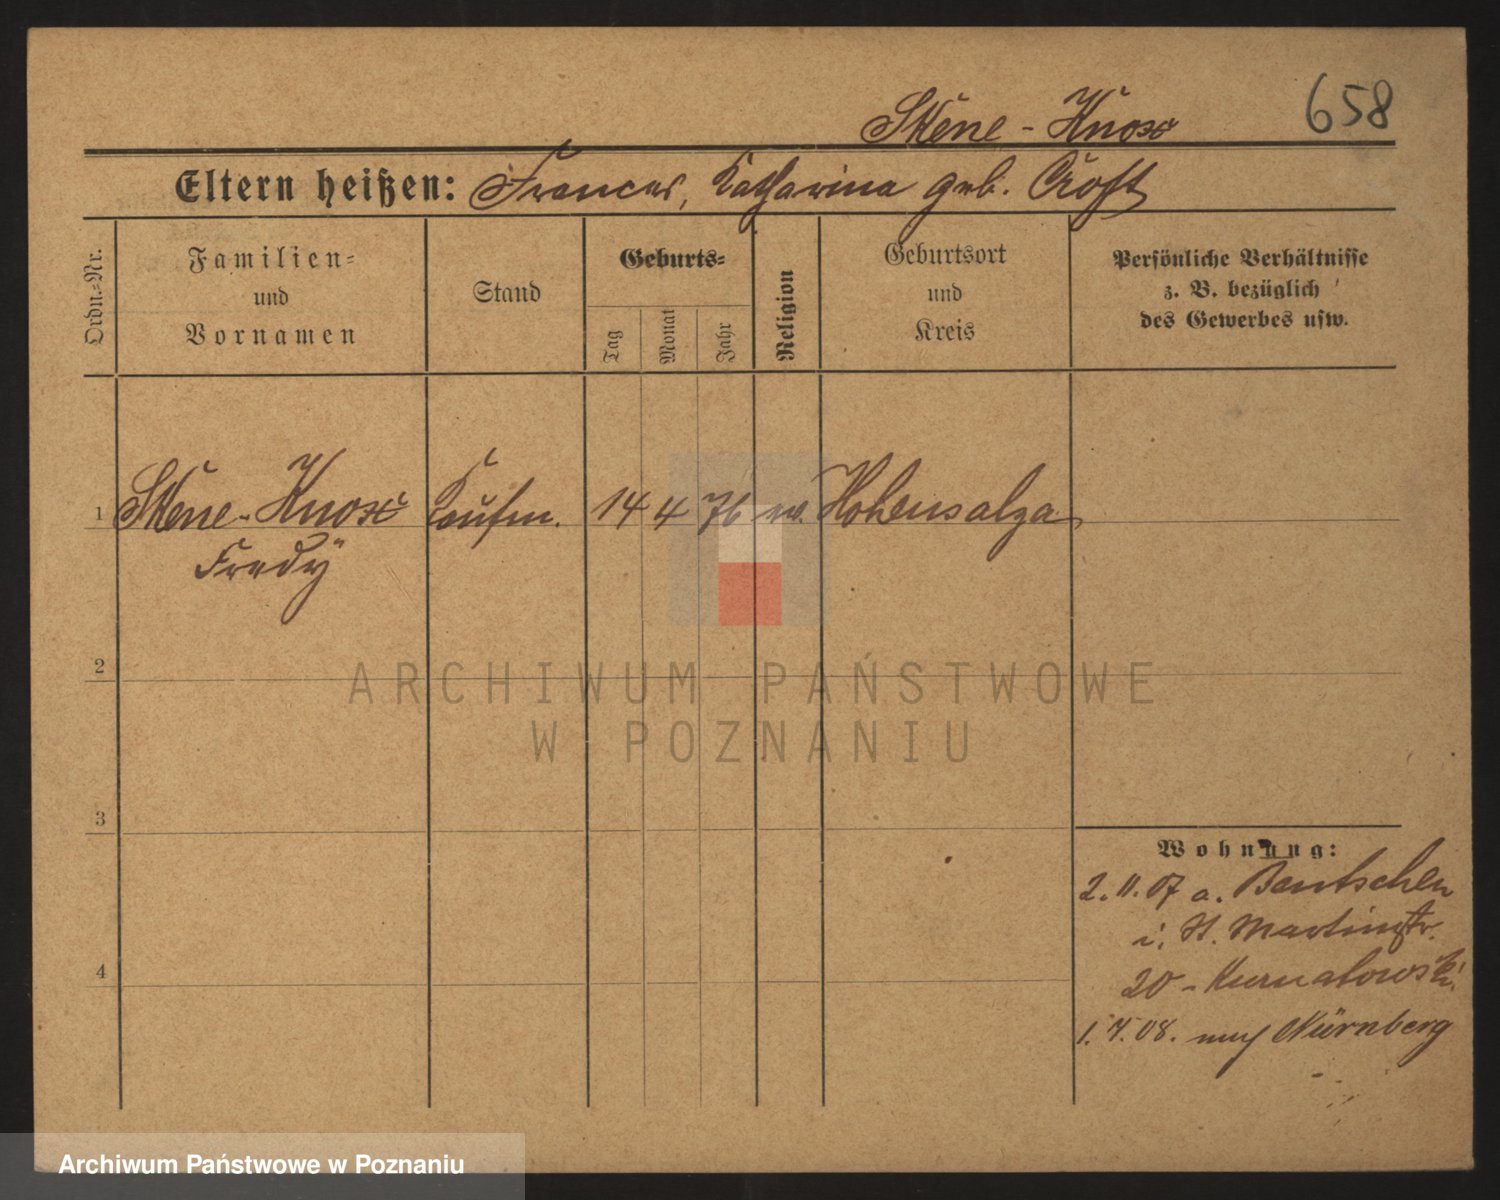 658
Skene - Knox
Eltern heißen: Frances, Katharina geb. Croft
Ordn.=Nr.
Familien=
und
Vornamen
Stand
Geburts=
Tag
Monat
Jahr
Religion
Geburtsort
und
Kreis
Persönliche Verhältnisse
z. B. bezüglich
des Gewerbes usw.
1 Skene-Knox Kaufm. 14 4 76 Hohensalza
Fredy
2
3
4
Wohnung:
2.11.07 a. Bentschen
i. St. Martinstr.
20 - Kurnatowski
1.4.08. nach Nürnberg
ARCHIWUM PAŃSTWOWE
W POZNANIU
Archiwum Państwowe w Poznaniu